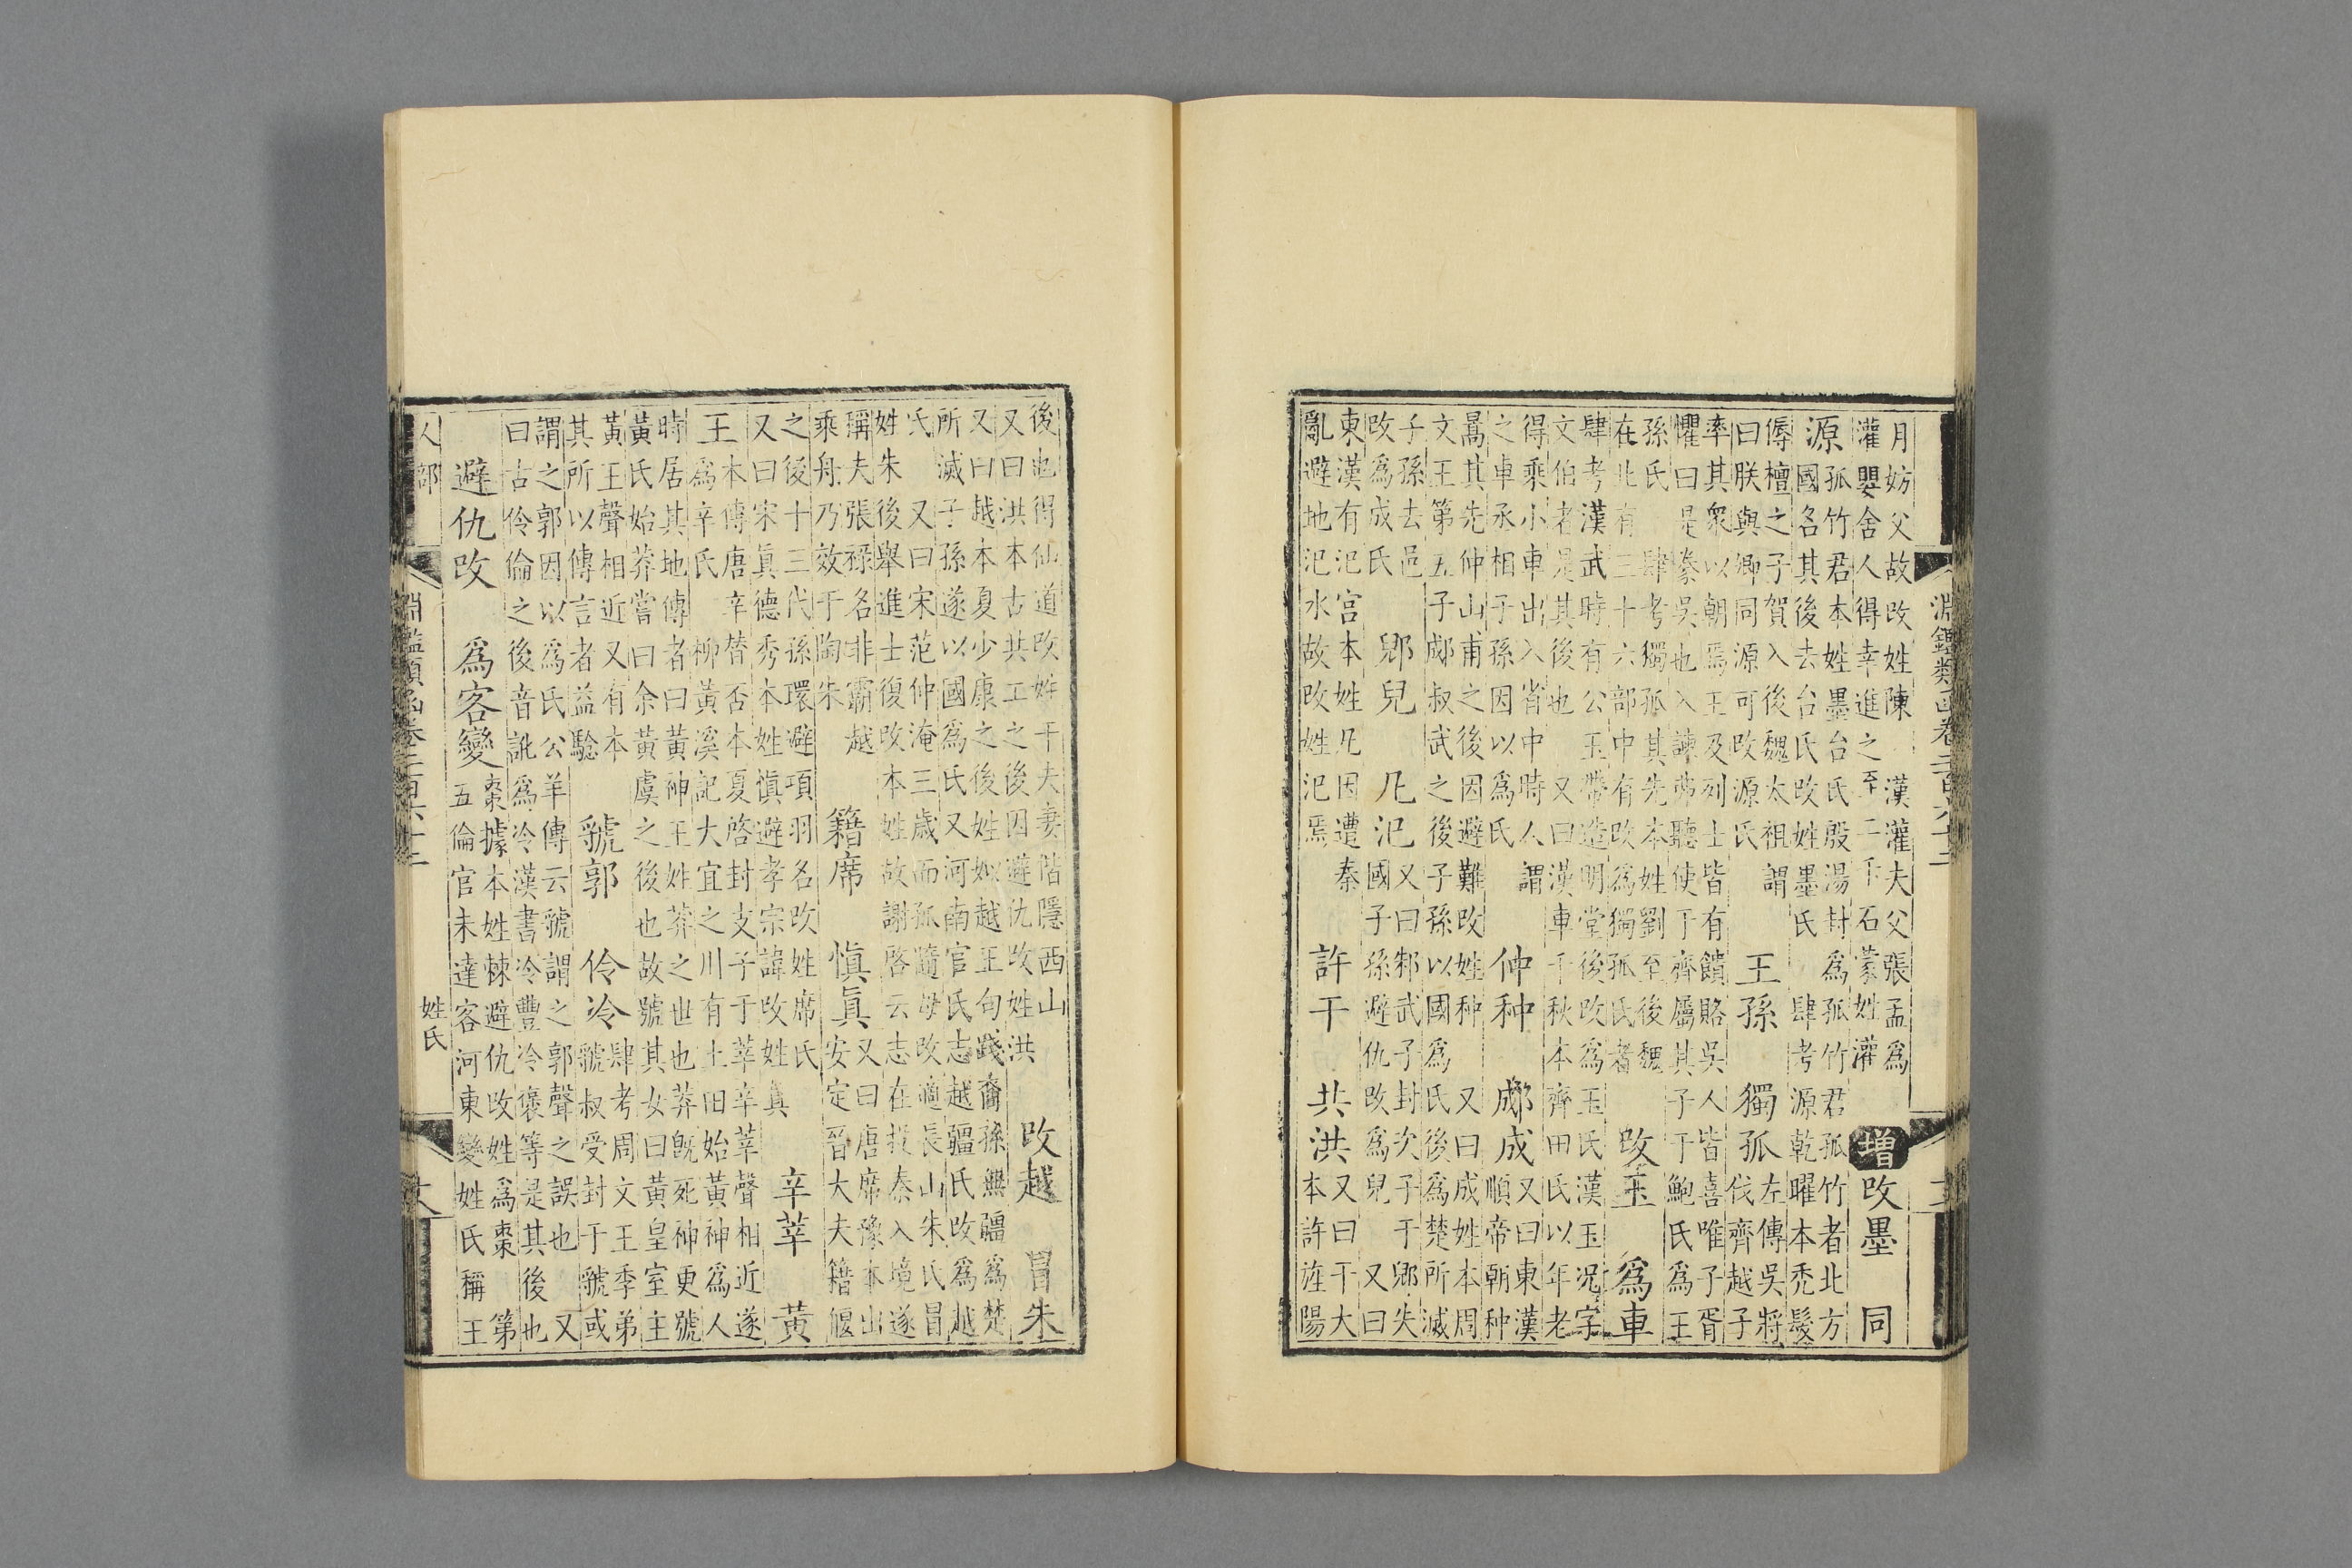 淵鑑類函卷二百六十二
月妨父故改姓陳 漢灌夫父張孟為
灌嬰舍人得幸進之至二千石蒙姓灌
增 改墨 同
源
孤竹君本姓墨台氏殷湯封為孤竹君孤竹者北方
國名其後去台氏改姓墨氏 肆考源乾曜本禿髮
傉檀之子賀入後魏太祖謂
曰朕與卿同源可改源氏
王孫 獨孤
左傳吳將
伐齊越子
率其衆以朝焉王及列士皆有饋賂吳人皆喜唯子胥
懼曰是豢吳也入諫弗聽使于齊屬其子于鮑氏為王
孫氏 肆考獨孤其先本姓劉至後魏
在北有三十六部中有改為獨孤氏者
改玉 為車
肆考漢武時有公玉帶造明堂後改為玉氏漢玉况字
文伯者是其後也 又曰漢車千秋本齊田氏以年老
得乘小車出入省中時人謂
之車丞相子孫因以為氏
仲种 郕成
又曰東漢
順帝朝种
暠其先仲山甫之後因避難改姓种 又曰成姓本周
文王第五子郕叔武之後子孫以國為氏後為楚所滅
子孫去邑
改為成氏
郳兒 凡汜
又曰邾武子封次子于郳失
國子孫避仇改為兒 又曰
東漢有汜宮本姓凡因遭秦
亂避地汜水故改姓汜焉
許干 共洪
又曰干大
本許旌陽
後也得仙道改姓干夫妻偕隱西山
又曰洪本古共工之後因避仇改姓洪
改越 冒朱
又曰越本夏少康之後姓姒越王句踐裔孫無疆為楚
所滅子孫遂以國為氏又河南官氏志越疆氏改為越
氏 又曰宋范仲淹三歲而孤隨母改適長山朱氏冒
姓朱後舉進士復改本姓故謝啓云志在投秦入境遂
稱夫張祿名非霸越
乘舟乃效于陶朱
籍席 慎真
又曰唐席豫本出
安定晉大夫籍偃
之後十三代孫環避項羽名改姓席氏
又曰宋真德秀本姓慎避孝宗諱改姓真
辛莘 黃
王
本傳唐辛替否本夏啓封支子于莘辛莘聲相近遂
為辛氏 柳黃溪記大宜之川有土田始黃神為人
時居其地傳者曰黃神王姓莽之世也莽既死神更號
黃氏始莽嘗曰余黃虞之後也故號其女曰黃皇室主
黃王聲相近又有本
其所以傳言者益驗
虢郭 伶冷
肆考周文王季弟
虢叔受封于虢或
謂之郭因以為氏公羊傳云虢謂之郭聲之誤也 又
曰古伶倫之後音訛為冷漢書冷豐冷褒等是其後也
避仇改 為客變
棗據本姓棘避仇改姓為棗 第
五倫官未達客河東變姓氏稱王
人部 淵鑑類函卷二百六十二 姓氏